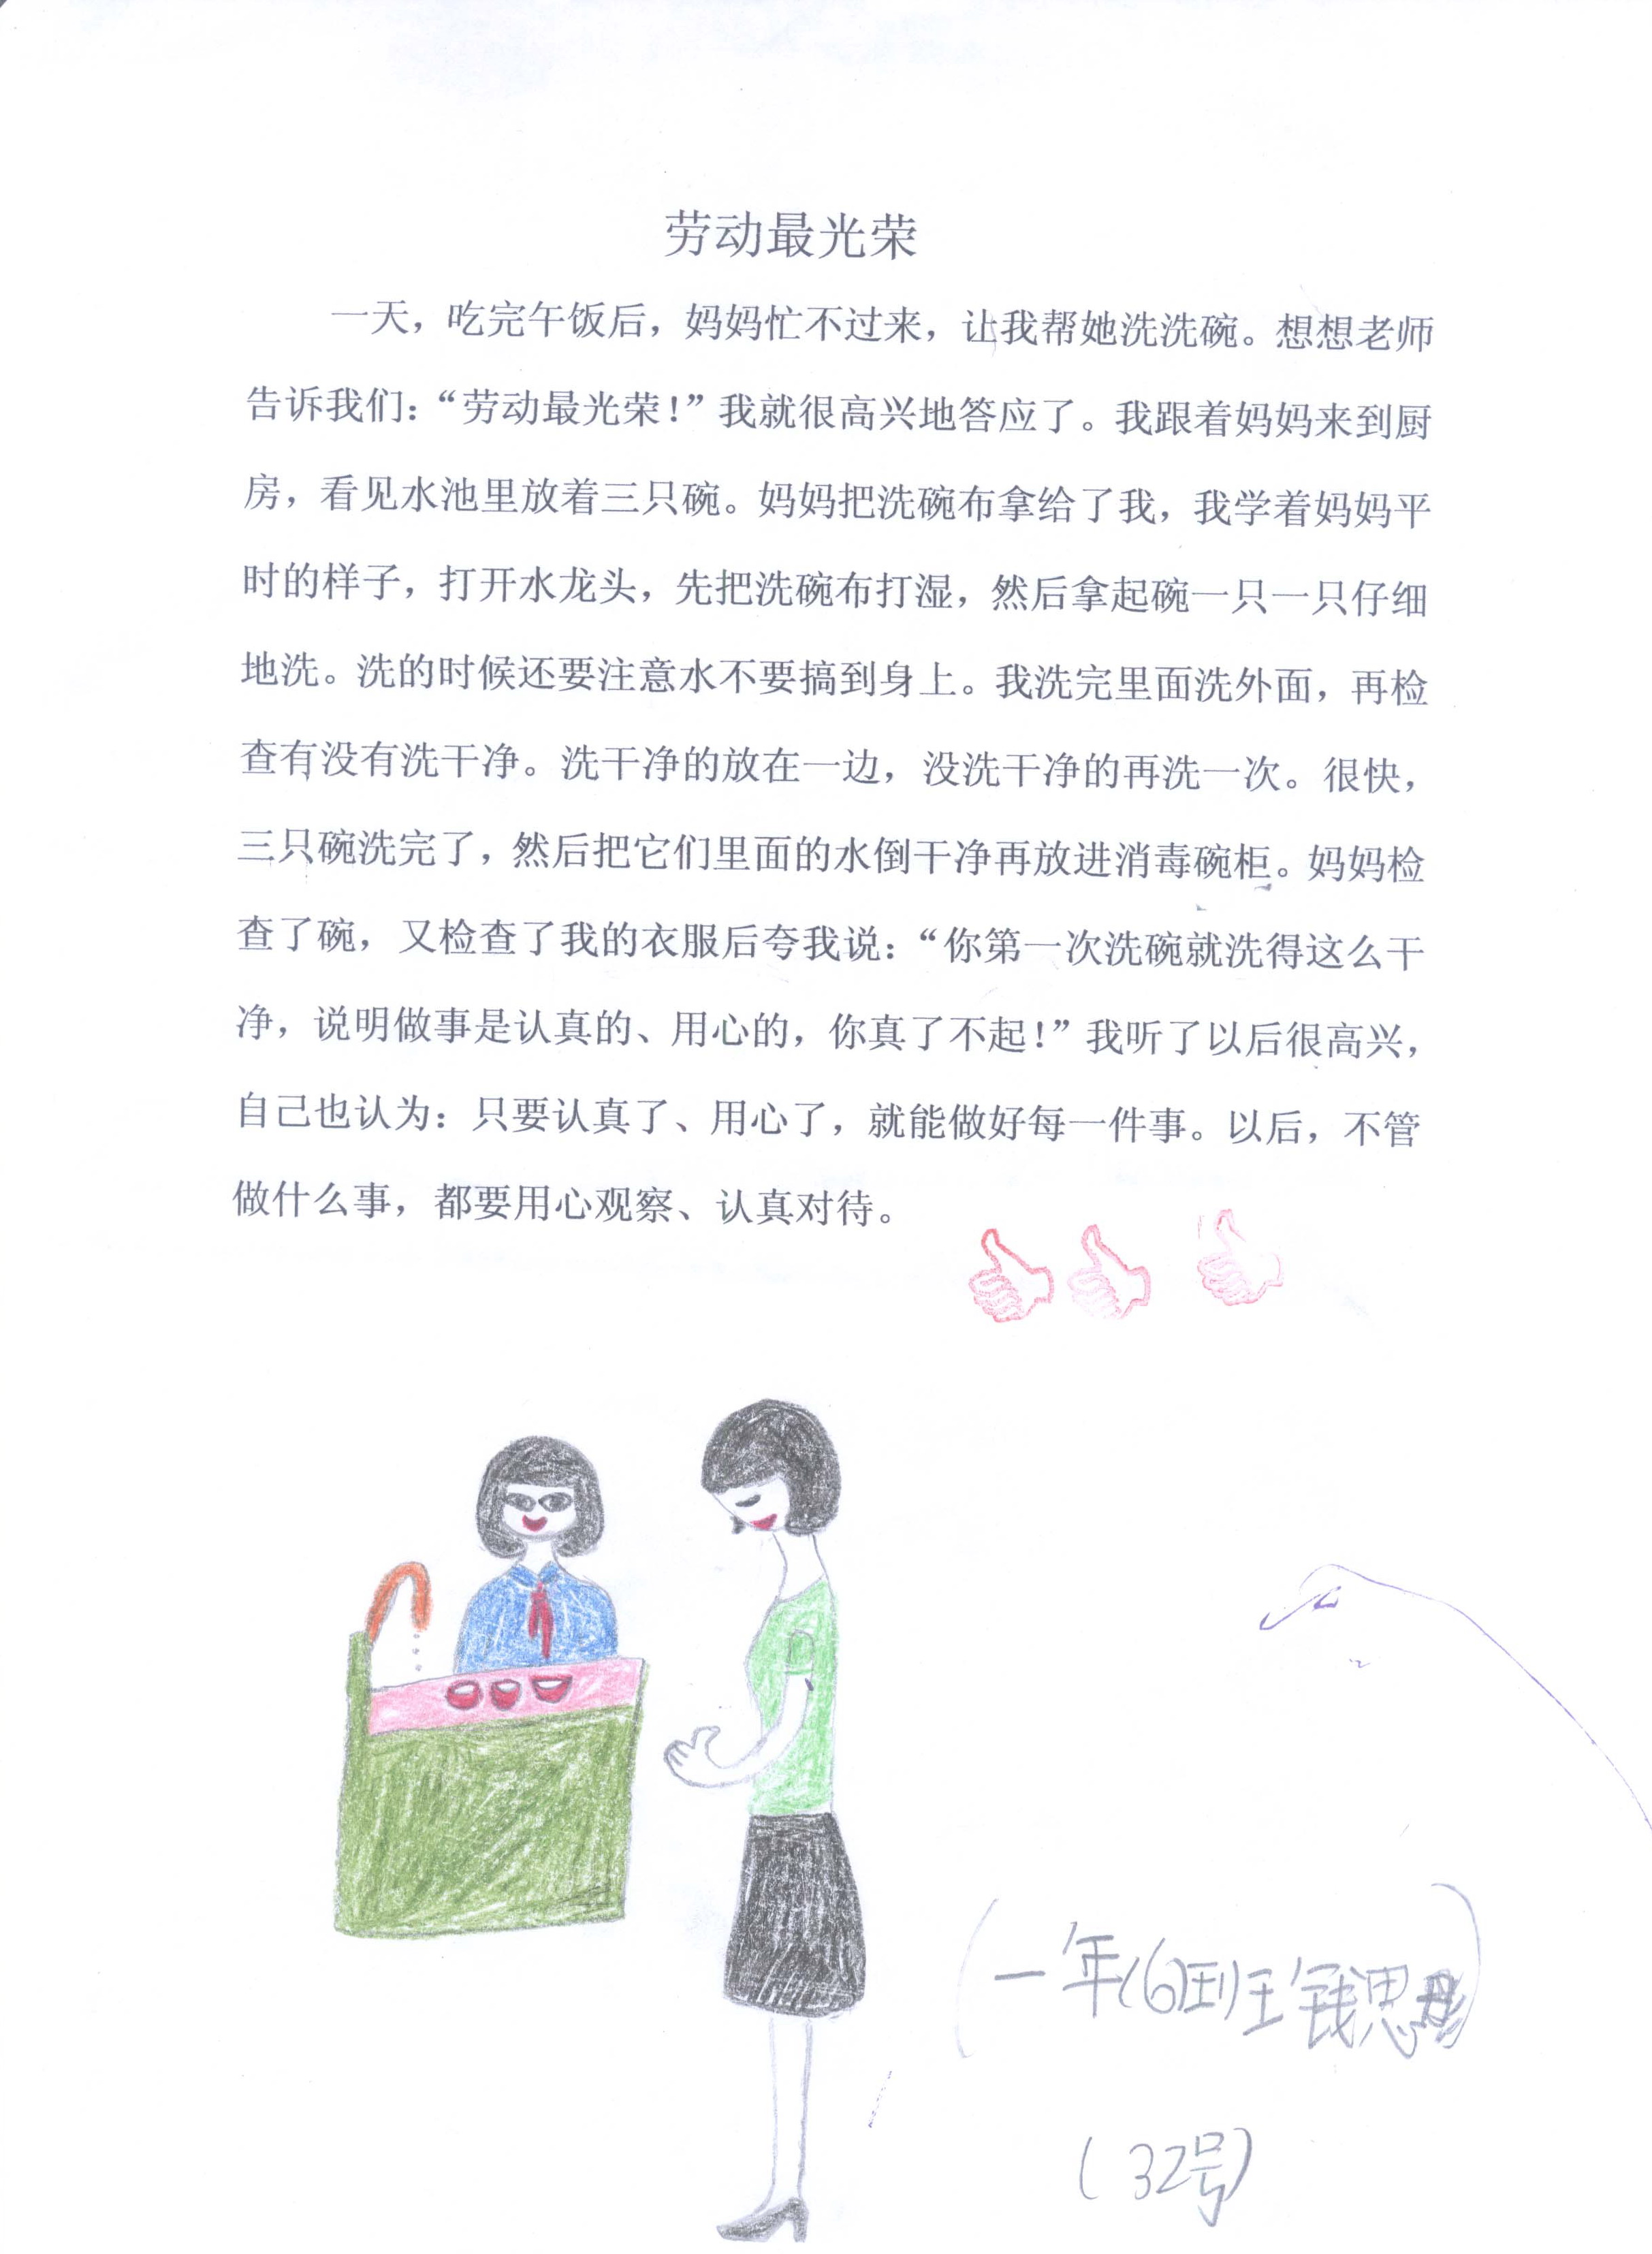 劳动最光荣
一天，吃完午饭后，妈妈忙不过来，让我帮她洗洗碗。想想老师
告诉我们：“劳动最光荣！”我就很高兴地答应了。我跟着妈妈来到厨
房，看见水池里放着三只碗。妈妈把洗碗布拿给了我，我学着妈妈平
时的样子，打开水龙头，先把洗碗布打湿，然后拿起碗一只一只仔细
地洗。洗的时候还要注意水不要搞到身上。我洗完里面洗外面，再检
查有没有洗干净。洗干净的放在一边，没洗干净的再洗一次。很快，
三只碗洗完了，然后把它们里面的水倒干净再放进消毒碗柜。妈妈检
查了碗，又检查了我的衣服后夸我说：“你第一次洗碗就洗得这么干
净，说明做事是认真的、用心的，你真了不起！”我听了以后很高兴，
自己也认为：只要认真了、用心了，就能做好每一件事。以后，不管
做什么事，都要用心观察、认真对待。
（一年（6）班王钱思）
（32号）